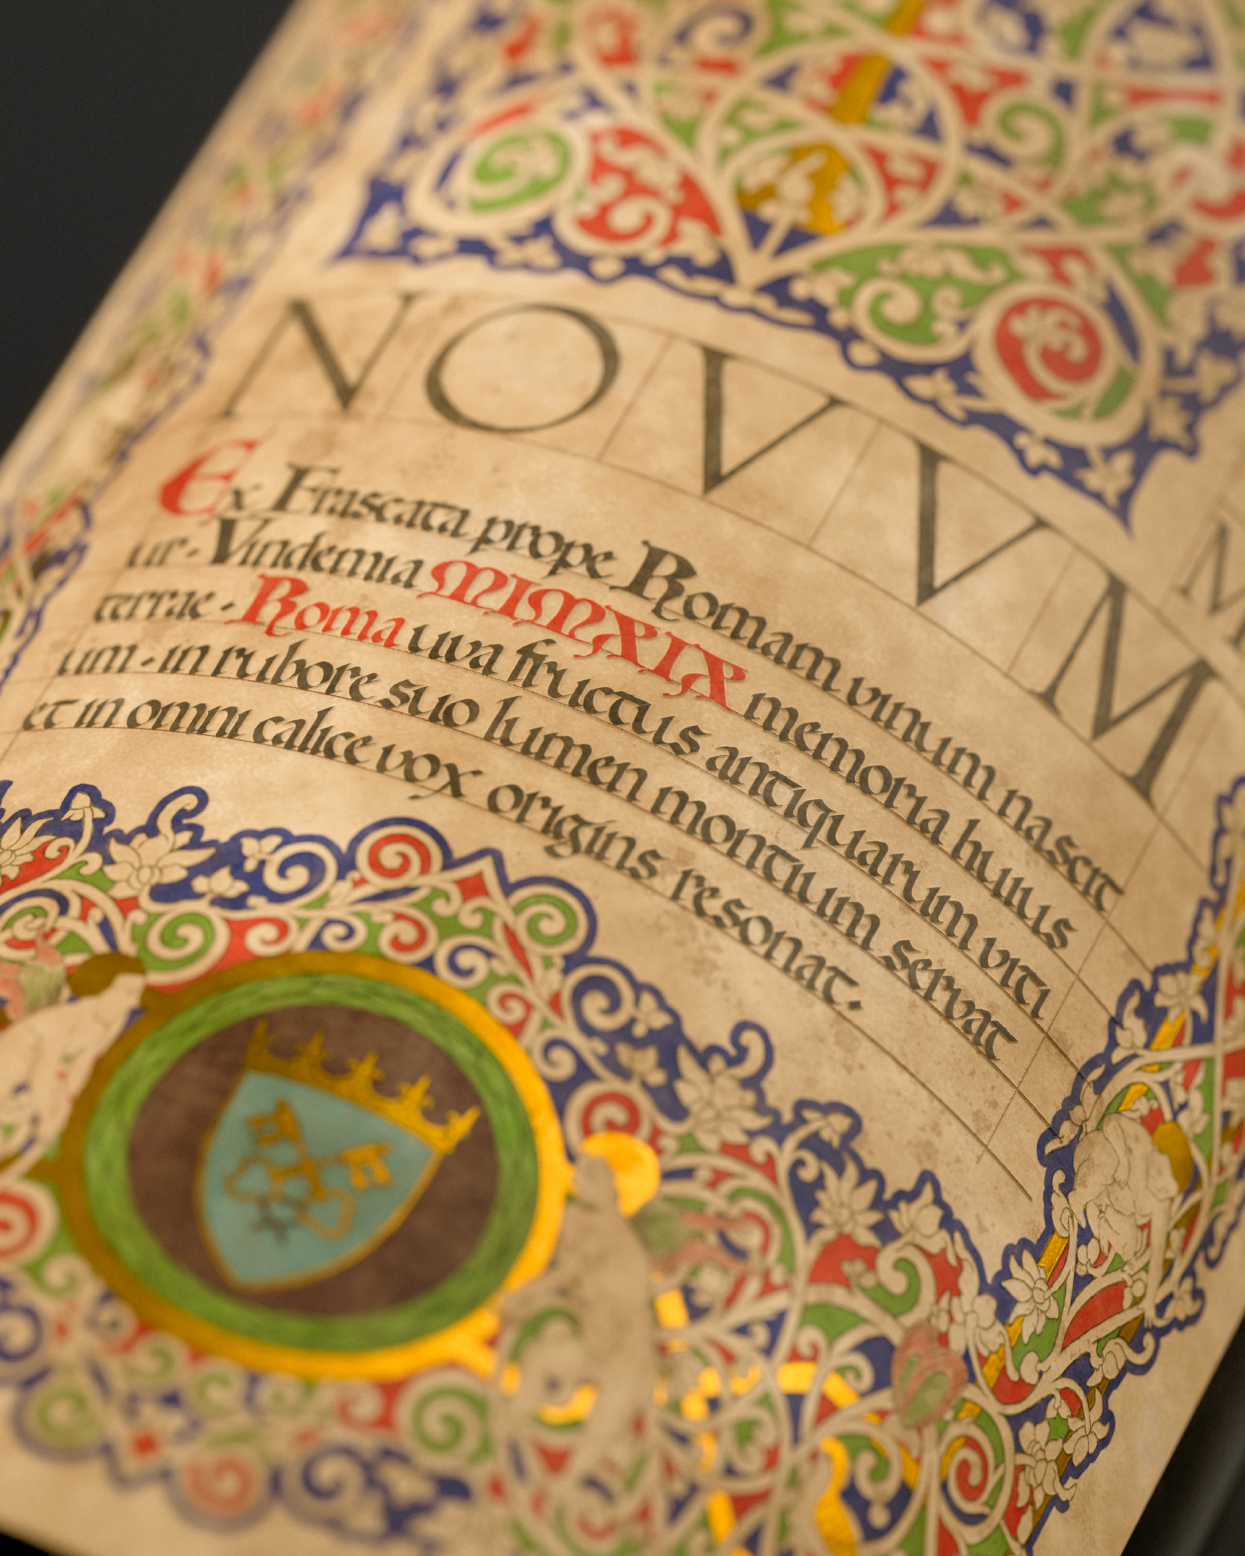 NOVVM
Ex Frascata prope Romam vinum nascit
ur · Vindemia MIMXIX memoria huius
terrae · Roma uva fructus antiquarum viti
um · in rubore suo lumen montium servat
et in omni calice vox origins resonat.